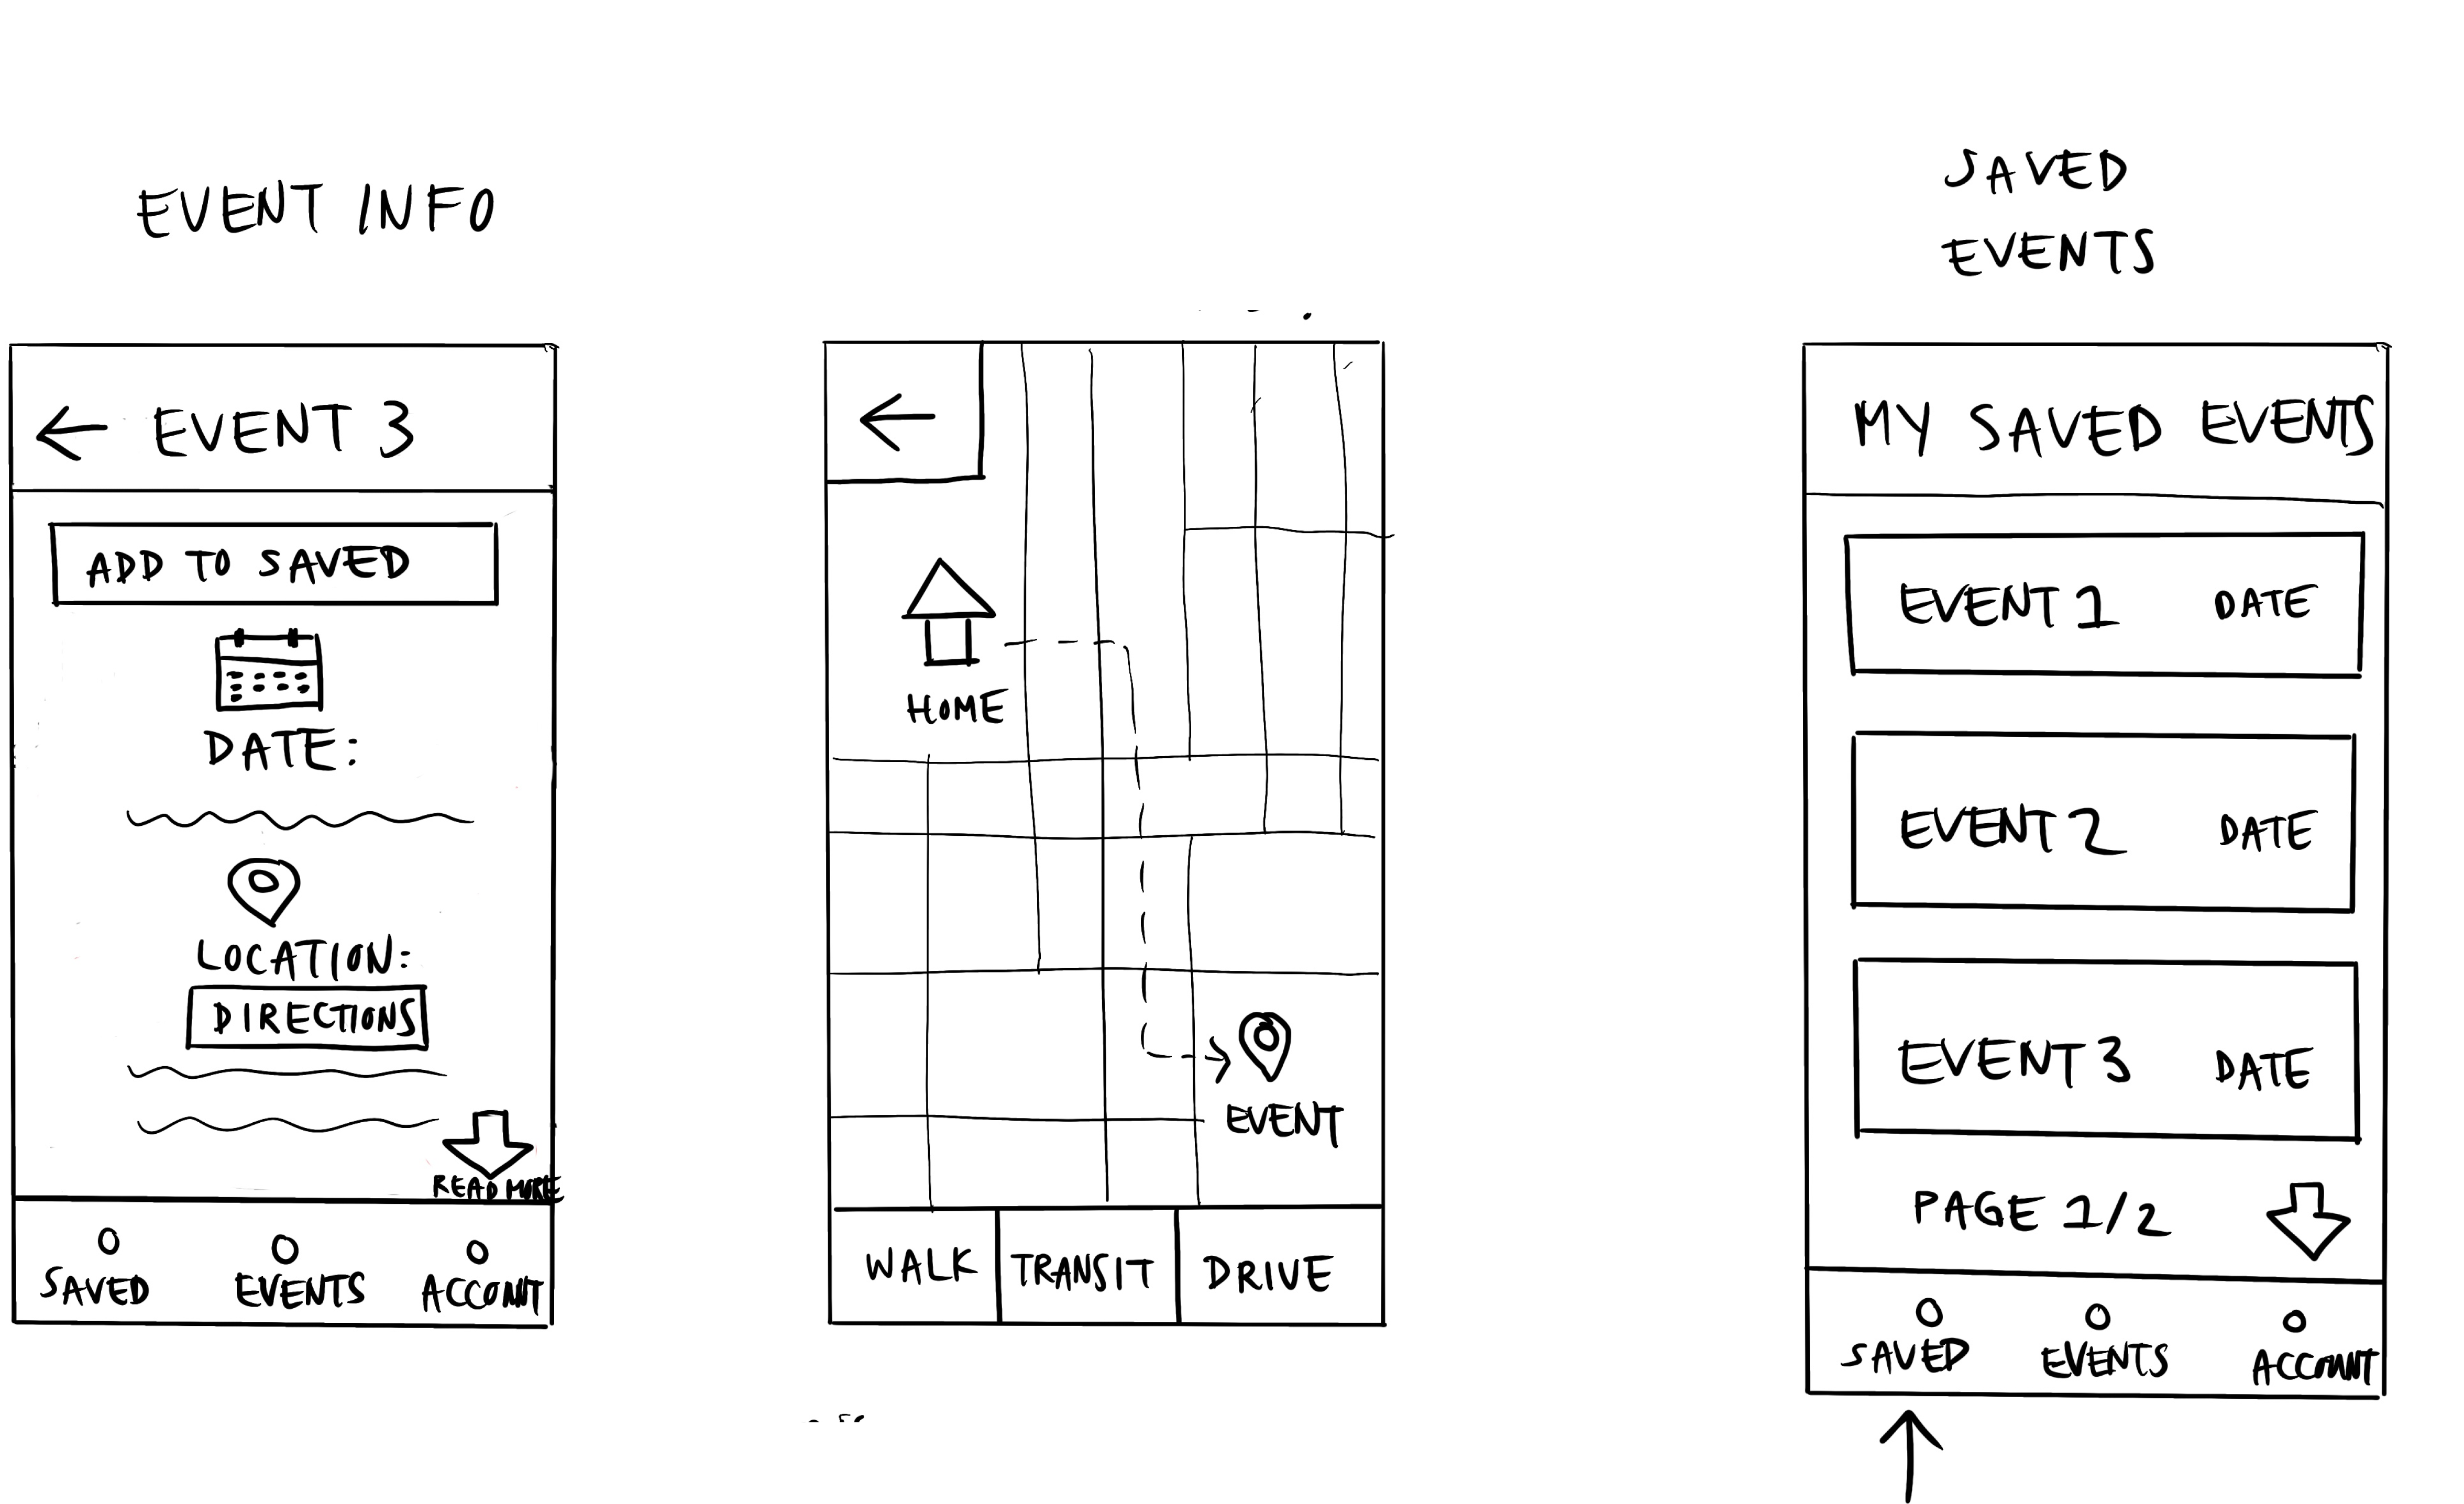 EVENT INFO
EVENT 3
ADD TO SAVED
DATE:
LOCATION:
DIRECTIONS
READ MORE
SAVED EVENTS ACCOUNT
HOME
EVENT
WALK TRANSIT DRIVE
SAVED
EVENTS
MY SAVED EVENTS
EVENT 1 DATE
EVENT 2 DATE
EVENT 3 DATE
PAGE 1/2
SAVED EVENTS ACCOUNT